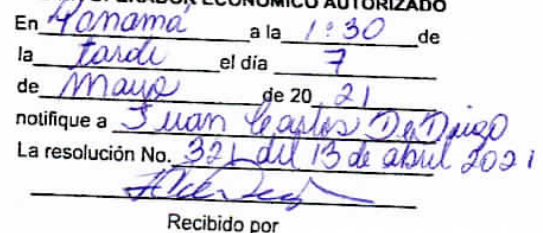 OPERADOR ECONÓMICO AUTORIZADO
En Panamá a la 1:30 de
la tarde el día 7
de Mayo de 20 21
notifique a Juan Carlos De Diego
La resolución No. 321 del 13 de abril 2021
Recibido por